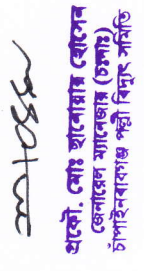 প্রকৌ. মোঃ ছানোয়ার হোসেন
জেনারেল ম্যানেজার (চলঃদাঃ)
চাঁপাইনবাবগঞ্জ পল্লী বিদ্যুৎ সমিতি